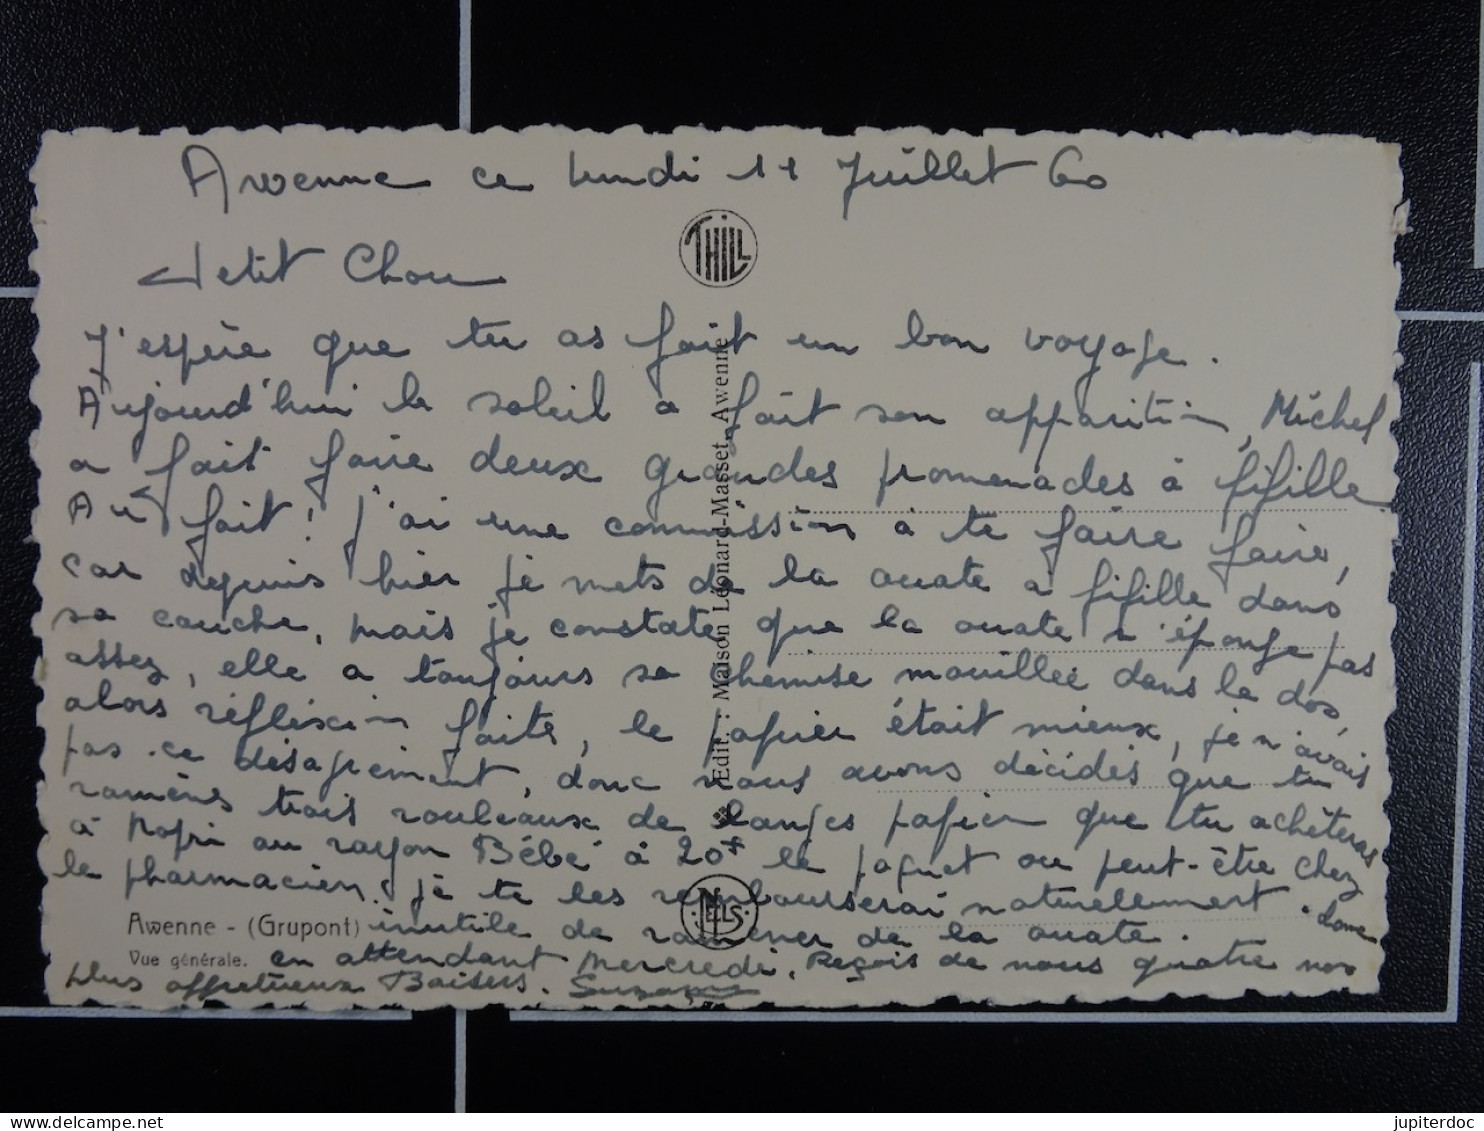 Awenne ce lundi 11 Juillet 60
THILL
Petit Chou
J'espère que tu as fait un bon voyage.
Aujourd'hui le soleil a fait son apparition, Michel
a fait faire deux grandes promenades à fifille
Au fait ! j'ai une commission à te faire faire,
car depuis hier je mets de la ouate à fifille dans
sa couche, mais je constate que la ouate n'éponge pas
assez, elle a toujours sa chemise mouillée dans le dos,
alors réflexion faite, le papier était mieux, je n'avais
pas ce désagrément, donc nous avons décidés que tu
ramènes trois rouleaux de langes papier que tu achèteras
à Nopri au rayon Bébé à 20f le paquet ou peut-être chez
le pharmacien, je te les rembourserai naturellement. donc
inutile de ramener de la ouate.
en attendant mercredi. Reçois de nous quatre nos
plus affectueux Baisers. Suzanne
Edit. : Maison Léonard-Masset, Awenne
NELS
Awenne - (Grupont)
Vue générale.
jupiterdoc